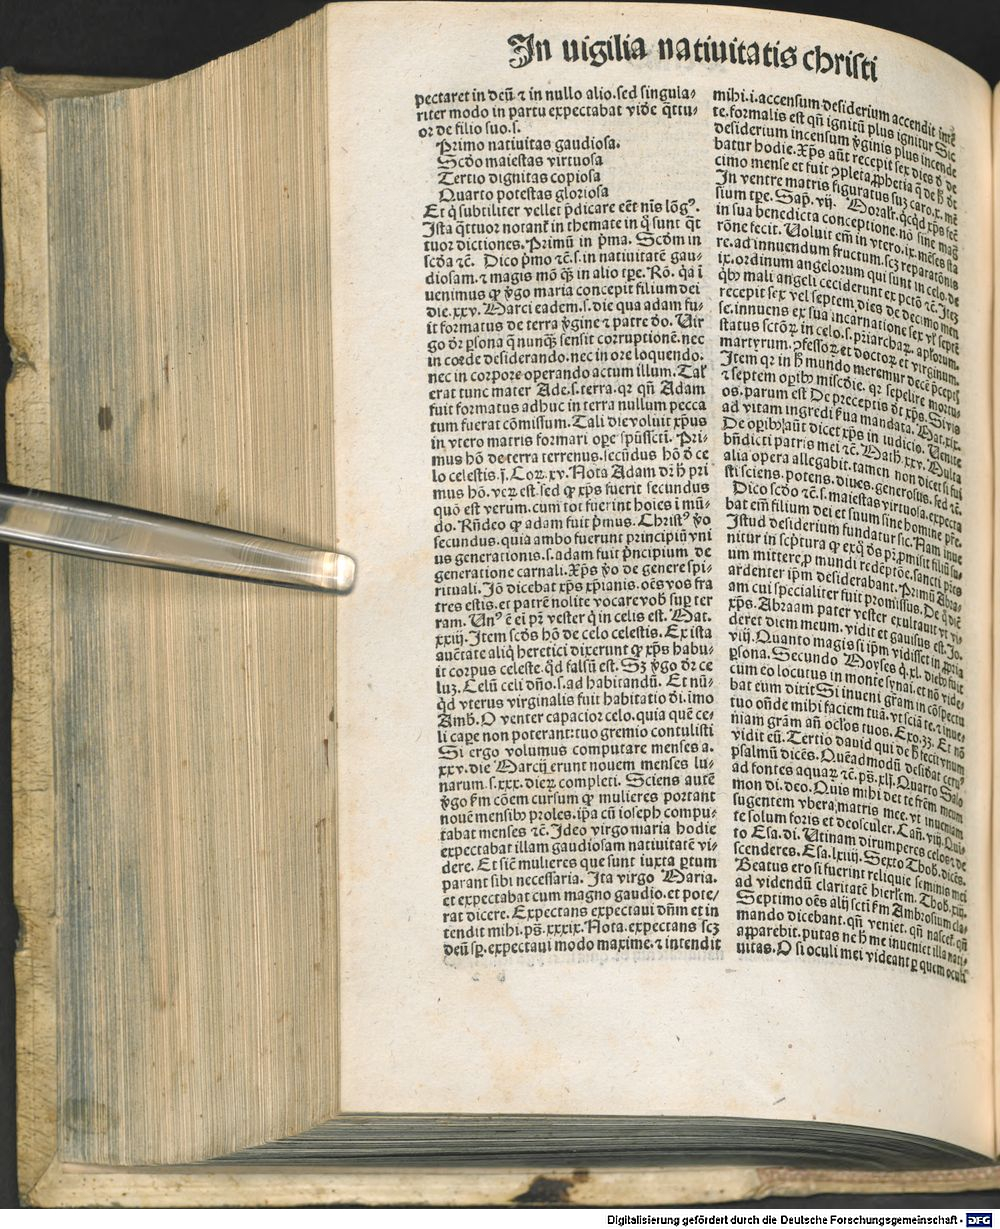 In uigilia natiuitatis christi
pectaret in deū ⁊ in nullo alio. sed singula-
riter modo in partu expectabat vide q̄ttu-
or de filio suo. s.
Primo natiuitas gaudiosa.
Scd̄o maiestas virtuosa
Tertio dignitas copiosa
Quarto potestas gloriosa
Et q̇ subtiliter vellet p̄dicare eēt nīs lōgꝰ.
Ista q̄ttuor notant̄ in themate in q̇ sunt q̄t
tuor dictiones. Primū in p̄ma. Scd̄m in
scd̄a ⁊c̄. Dico p̄mo ⁊c̄. s. in natiuitatē gau-
diosam. ⁊ magis mō q̄ꝫ in alio tꝑe. Rō. q̇a ī
uenimus ꝙ v̄go maria concepit filium dei
die. xxv. Marci eadem. s. die qua adam fu-
it formatus de terra v̄gine ⁊ patre dō. Uir
go dr̄ ꝑsona q̄ nunqꝫ sensit corruptionē. nec
in corde desiderando. nec in ore loquendo.
nec in corpore operando actum illum. Tal̄
erat tunc mater Ade. s. terra. qꝛ qn̄ Adam
fuit formatus adhuc in terra nullum pecca
tum fuerat cōmissum. Tali die voluit xp̄us
in vtero matris formari oꝑe spūsscti. Pri-
mus hō de terra terrenus. secūdus hō d̄ ce
lo celestis. j. Coꝛ. xv. Nota Adam dr̄ h̄ pri
mus hō. veꝝ est. sed ꝙ xp̄s fuerit secundus
quō est verum. cum tot fuerint hoīes ī mū-
do. Rn̄deo ꝙ adam fuit p̄mus. Christꝰ v̄o
secundus. quia ambo fuerunt principiū vni
us generationis. s. adam fuit p̄ncipium de
generatione carnali. Xp̄s v̄o de genere spi-
rituali. Jō dicebat xp̄s xp̄ianis. oēs vos fra
tres estis. et patrē nolite vocare vob̄ suꝑ ter
ram. Unꝰ ē ei pr̄ vester q̇ in celis est. Mat.
xxiij. Item scd̄s hō de celo celestis. Ex ista
auc̄tate aliq̇ heretici dixerunt ꝙ xp̄s habu-
it corpus celeste. qd̄ falsū est. Sꝫ v̄go dr̄ ce
luꝫ. Celū celi dn̄o. s. ad habitandū. Et nū-
q̇d vterus virginalis fuit habitatio dī. imo
Amb̄. O venter capacior celo. quia quē ce-
li caꝑe non poterant: tuo gremio contulisti
Si ergo volumus computare menses a.
xxv. die Marcij erunt nouem menses lu-
narum. s. xxx. dieꝝ completi. Sciens autē
v̄go ẜm cōem cursum ꝙ mulieres portant
nouē mensibꝰ proles. ip̄a cū ioseph compu-
tabat menses ⁊c̄. Ideo virgo maria hodie
expectabat illam gaudiosam natiuitatē vi-
dere. Et sic̄ mulieres que sunt iuxta ꝑtum
parant sibi necessaria. Ita virgo Maria.
et expectabat cum magno gaudio. et pote-
rat dicere. Expectans expectaui dn̄m et in
tendit mihi. ps̄. xxxix. Nota. expectans scꝫ
deū sꝑ. expectaui modo maxime. ⁊ intendit
mihi. i. accensum desiderium accendit
te. formalis est qn̄ ignitū plus ignitur Sic
desiderium incensum v̄ginis plus incende
batur hodie. Xp̄s aūt recepit sex dies d̄ de
cimo mense et fuit ꝯpleta ꝓphetia q̄ de h̄ dr̄
In ventre matris figuratus suꝫ caro. x. mē
sium tꝑe. Sap̄. vij. Moralr̄. qc̄qd xp̄s fec̄
in sua benedicta conceptione. nō sine maḡ
rōne fecit. Uoluit em̄ in vtero. ix. mēses sta
re. ad innuendum fructum. scꝫ reparatōnis
ix. ordinum angelorum qui sunt in celo. de
qibꝰ mali angeli ceciderunt ex pctō ⁊c̄. Iteꝫ
recepit sex vel septem dies de decimo men
se. innuens ex sua incarnatione sex vl̄ septē
status sctōꝝ in celo. s. priarchaꝝ. apl̄orum.
martyrum. ꝯfessoꝝ et doctoꝝ et virginum.
Item qꝛ in h̄ mundo meremur decē p̄cepti
⁊ septem oꝑibꝰ miscd̄ie. qꝛ sepelire mortu-
os. parum est De preceptis dr̄ xp̄s. Si vis
ad vitam ingredi ẜua mandata. Mat. xix.
De oꝑibꝰ aūt dicet xp̄s in iudicio. Uenite
bn̄dicti patris mei ⁊c̄. Math. xxv. Multa
alia opera allegabit. tamen non dicet si fui
sti sciens. potens. diues. generosus. sed ⁊c̄.
Dico scd̄o ⁊c̄. s. maiestas virtuosa. expecta
bat em̄ filium dei et suum sine homine p̄re.
Istud desiderium fundatur sic. Nam inue
nitur in sc̄ptura ꝙ exq̇ ds̄ pr̄ ꝓmisit filiū su-
um mittere ꝓ mundi redēptōe. sancti p̄res
ardenter ip̄m desiderabant. Primū Abra-
am cui specialiter fuit promissus. De q̇ dic̄
xp̄s. Abraam pater vester exultauit vt vi-
deret diem meum. vidit et gauisus est. Jo.
viij. Quanto magis si ip̄m vidisset in ꝓpria
ꝑsona. Secundo Moyses q̇. xl. diebꝰ fuit
cum eo locutus in monte synai. et nō vide-
bat eum dixit Si inueni gr̄am in cōspectu
tuo on̄de mihi faciem tuā. vt sciā te. ⁊ inue-
niam gr̄am an̄ ocl̄os tuos. Exo. 33. Et nō
vidit eū. Tertio dauid qui de h̄ fecit vnum
psalmū dicēs. Quēadmodū desid̄at ceruꝰ
ad fontes aquaꝝ ⁊c̄. ps̄. xlj. Quarto Salo
mon di. deo. Quis mihi det te fr̄em meum
sugentem vbera matris mee. vt inueniam
te solum foris et deosculer. Cañ. viij. Qui-
to Esa. di. Utinam dirumperes celos ⁊ de
scenderes. Esa. lxiiij. Sexto Thob̄. dicēs.
Beatus ero si fuerint reliquie seminis mei
ad videndū claritatē hierlēm. Thob̄. xiij.
Septimo oēs alij scti ẜm Ambrosium cla-
mando dicebant. qn̄ veniet. qn̄ nascet̄. qn̄
apparebit. putas ne h̄ me inueniet illa nati-
uitas. O si oculi mei videant ꝑ quem oculi
Digitalisierung gefördert durch die Deutsche Forschungsgemeinschaft - DFG